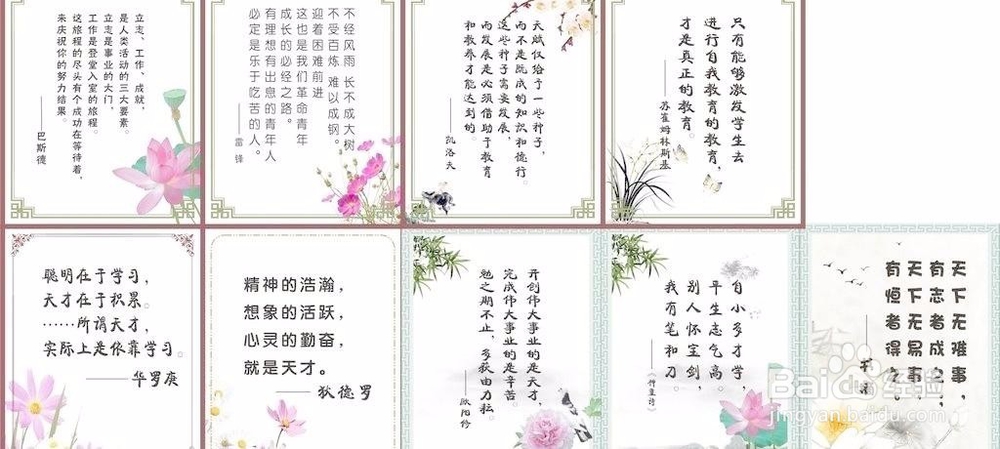 立志、工作、成就,
是人类活动的三大要素。
立志是事业的大门,
工作是登堂入室的旅程。
这旅程的尽头有个成功在等待着,
来庆祝你的努力结果。
——巴斯德
不经风雨 长不成大树
不受百炼 难以成钢。
迎着困难前进
这也是我们革命青年
成长的必经之路。
有理想有出息的青年人
必定是乐于吃苦的人。
——雷锋
天赋仅给予一些种子,
而不是既成的知识和德行。
这些种子需要发展,
而发展是必须借助于教育
和教养才能达到的。
——凯洛夫
只有能够激发学生去
进行自我教育的教育,
才是真正的教育。
——苏霍姆林斯基
聪明在于学习,
天才在于积累。
……所谓天才,
实际上是依靠学习。
——华罗庚
精神的浩瀚,
想象的活跃,
心灵的勤奋,
就是天才。
——狄德罗
开创伟大事业的是天才,
完成伟大事业的是辛苦
勉之期不止,多获由力耘。
——欧阳修
自小多才学,
平生志气高。
别人怀宝剑,
我有笔和刀。
——《神童诗》
天下无难事,
有志者成之,
天下无易事,
有恒者得之。
Baidu 经验
jingyan.baidu.com